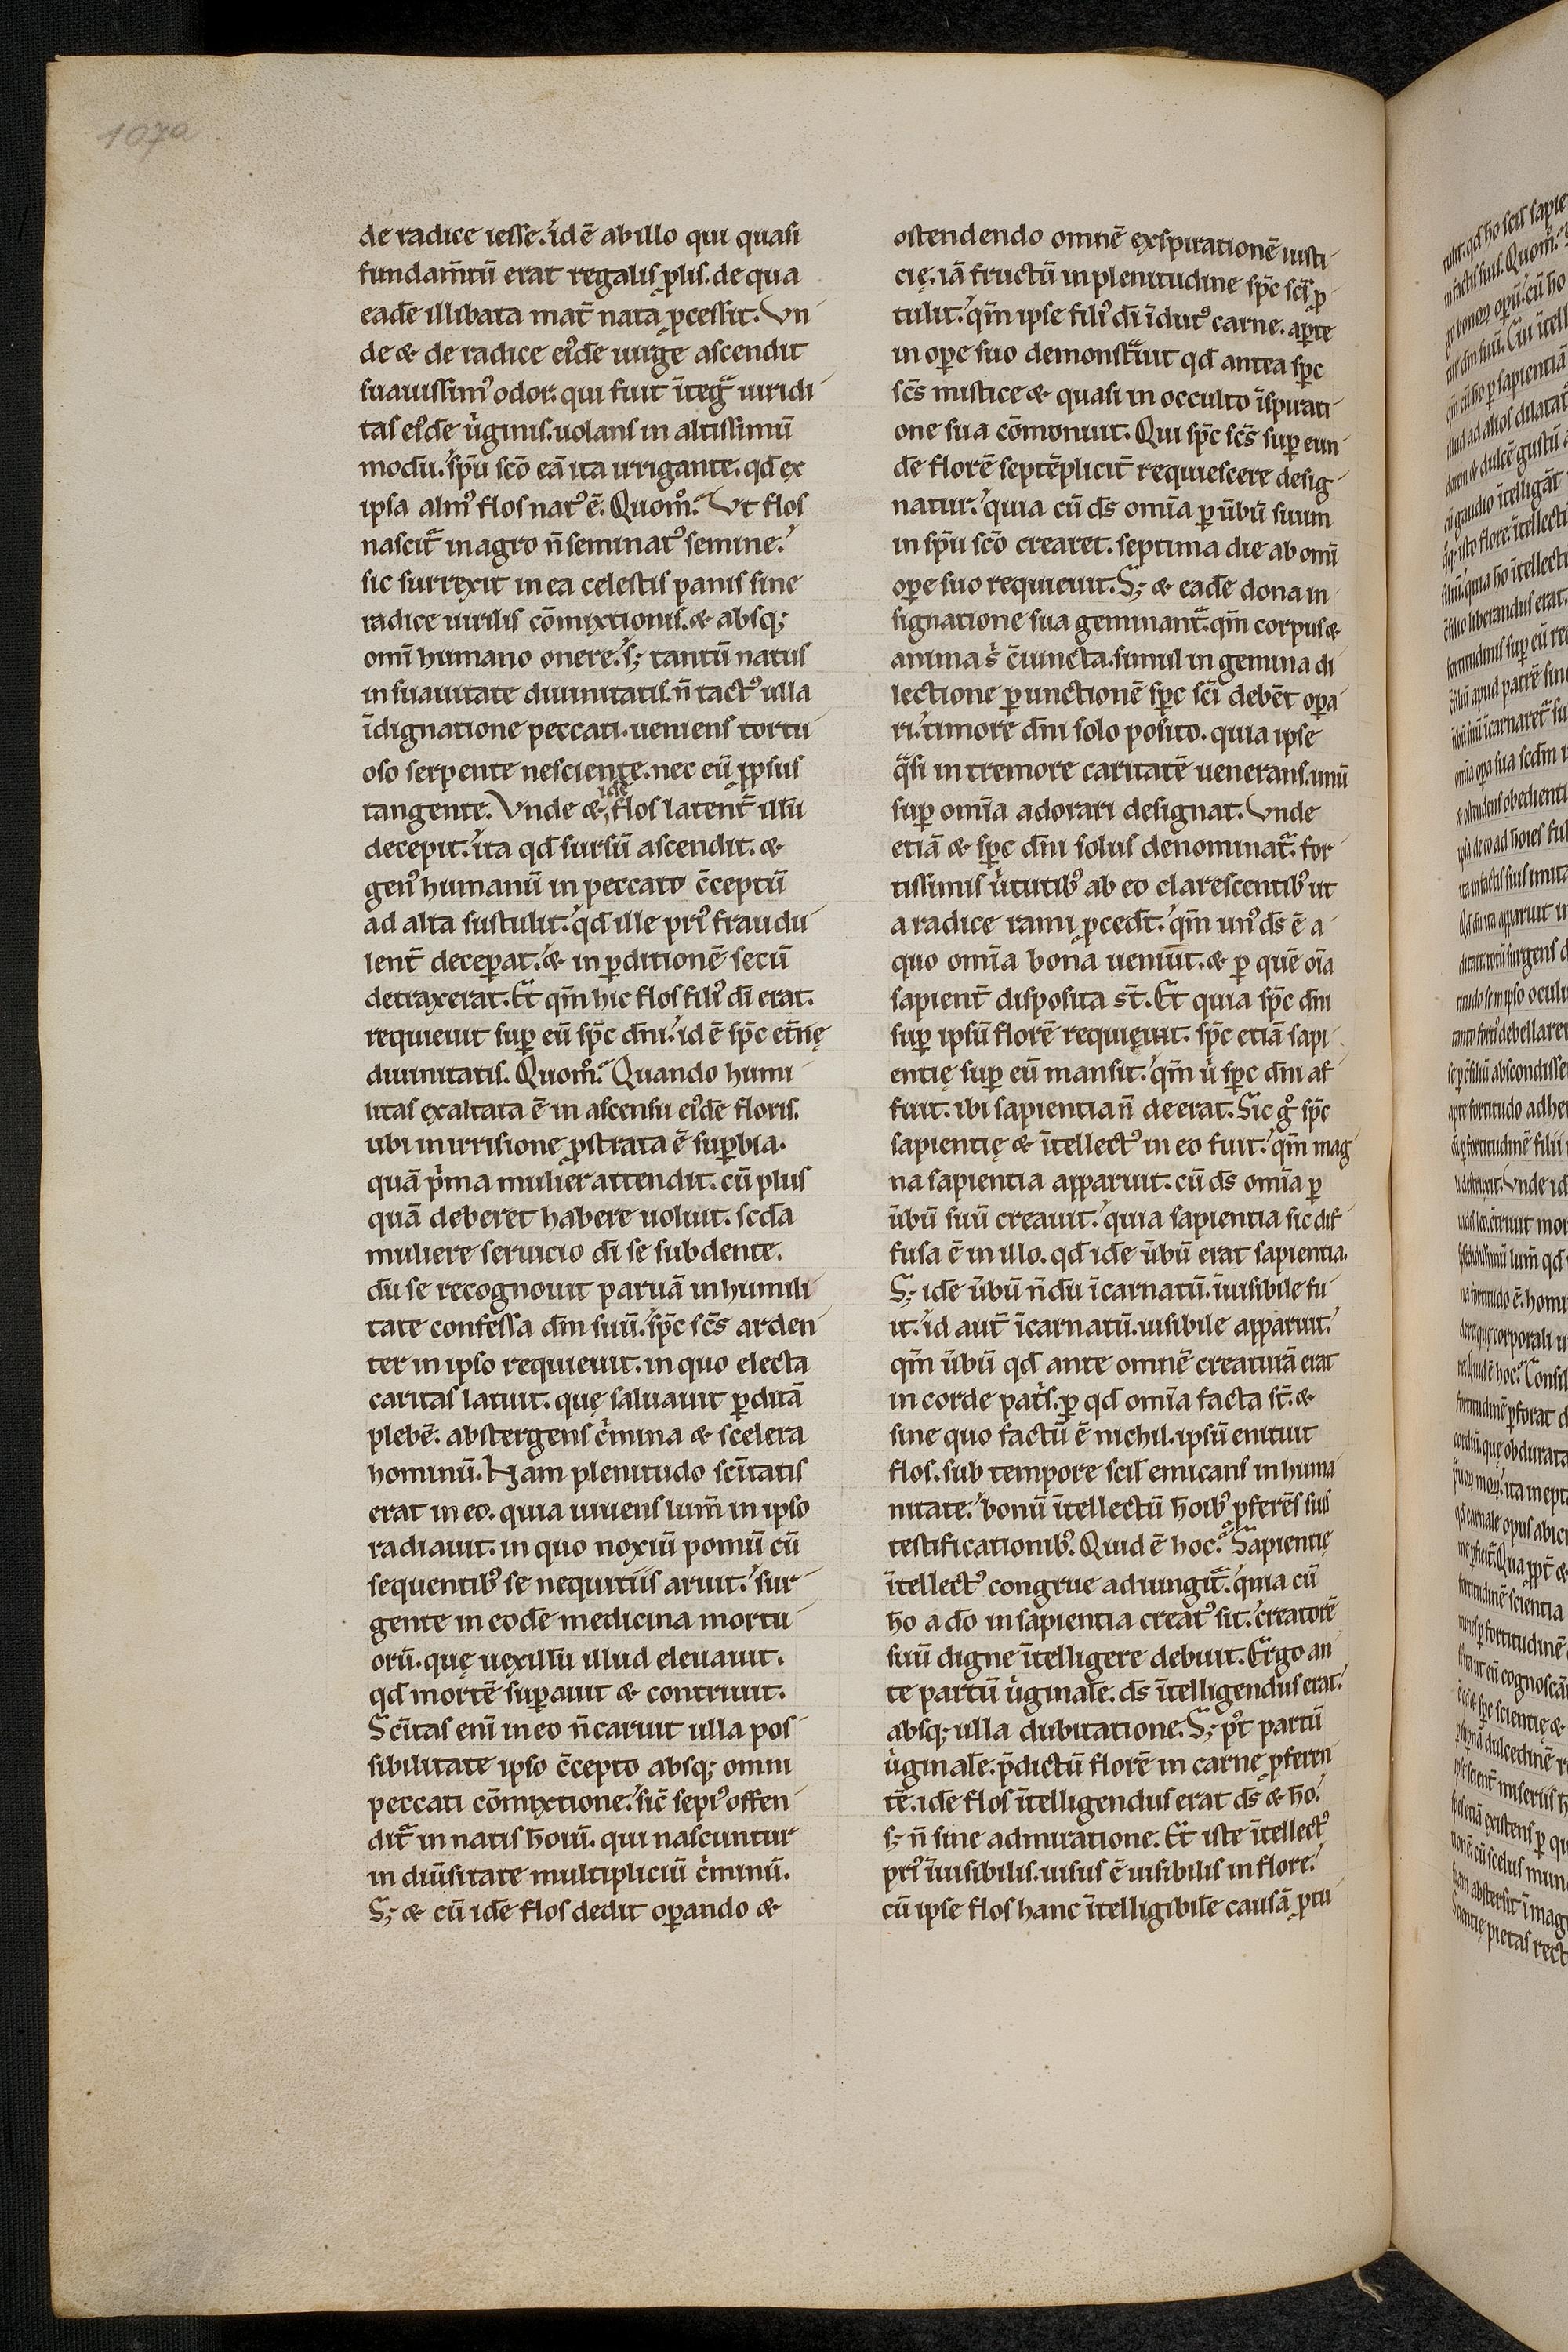 107a
de radice iesse. id ē ab illo qui quasi
fundam̄tū erat regalis ꝓlis. de qua
eadē illibata mat̄ nata ꝓcessit. Vn
de & de radice eiꝰdē uirgę ascendit
suauissimꝰ odor. qui fuit īteg̃ uiridi
tas eiꝰdē u̇ginis. uolans in altissimū
modū. sp̄u sc̄o eā ita irrigante. qd̄ ex
ipsa almꝰ flos natꝰ ē. Quom̊. Vt flos
nascit̃ in agro n̄ seminatꝰ semine.
sic surrexit in ea celestis panis sine
radice uirilis cōmixtionis. & absq;
om̄i humano onere. s; tantū natus
in suauitate diuinitatis. n̄ tactꝰ ulla
īdignatione peccati. ueniens tortu
oso serpente nesciente. nec eū ꝓpsus
tangente. Vnde & idē flos latent̄ illū
decepit. ita qd̄ sursū ascendit. &
genꝰ humanū in peccato c̄ceptū
ad alta sustulit. qd̄ ille priꝰ fraudu
lent̄ decepat. & in ꝑditionē secū
detraxerat. Et qm̄ hic flos filiꝰ dī erat.
requieuit suꝑ eū sp̄c dn̄i. id ē sp̄c et̄nę
diuinitatis. Quom̊. Quando humi
litas exaltata ē in ascensu eiꝰdē floris.
ubi in irrisione ꝓstrata ē suꝑbia.
quā pima mulier attendit. cū plus
quā deberet habere uoluit. scd̄a
muliere seruicio dī se subdente.
dū se recognouit paruā in humili
tate confessa dm̄ suū. sp̄c sc̄s arden
ter in ipso requieuit. in quo electa
caritas latuit. quę saluauit ꝑditā
plebē. abstergens cimina & scelera
hominū. Nam plenitudo sc̄itatis
erat in eo. quia uiuens lum̄ in ipso
radiauit. in quo noxiū pomū cū
sequentibꝰ se nequitiis aruit. sur
gente in eodē medicina mortu
orū. quę uexillū illud eleuauit.
qd̄ mortē suꝑauit & contriuit.
Sc̄itas enī in eo n̄ caruit ulla pos
sibilitate ipso c̄cepto absq; omni
peccati cōmixtione. sic̄ sepiꝰ offen
dit̃ in natis hoīū. qui nascuntur
in diūsitate multipliciū ciminū.
S; & cū idē flos dedit oꝑando &
ostendendo omnē exspirationē iusti
cię. iā fructū in plenitudine sp̄c sc̄s ꝓ
tulit. qm̄ ipse filiꝰ dī īdutꝰ carne. aꝑte
in oꝑe suo demonstr̃uit qd̄ antea sp̄c
sc̄s mistice & quasi in occulto īspirati
one sua cōmonuit. Qui sp̄c sc̄s suꝑ eun
dē florē septēplicit̄ requiescere desig
natur. quia cū ds̄ omīa ꝑ ūbū suum
in sp̄u sc̄o crearet. septima die ab omī
oꝑe suo requieuit. S; & eadē dona in
signatione sua geminant̃. qm̄ corpus &
anima s̄ c̄iuncta. simul in gemina di
lectione ꝑ unctionē sp̄c sc̄i debēt oꝑa
ri. timore dn̄i solo posito. quia ipse
q̃si in tremore caritatē uenerans. unū
suꝑ omīa adorari designat. Vnde
etiā & sp̄c dn̄i solus denominat̃. for
tissimis u̇tutibꝰ ab eo clarescentibꝰ ut
a radice rami ꝓcedt̄. qm̄ unꝰ ds̄ ē a
quo omīa bona ueniūt. & ꝑ quē oīa
sapient̄ disposita st̄. Et quia sp̄c dn̄i
suꝑ ipsū florē requieuit. sp̄c etiā sapi
entię suꝑ eū mansit. qm̄ u̇ sp̄c dn̄i af
fuit. ibi sapientia n̄ deerat. Sic g̊ sp̄c
sapientię & ītellectꝰ in eo fuit. qm̄ mag
na sapientia apparuit. cū ds̄ omīa ꝑ
ūbū suū creauit. quia sapientia sic dif
fusa ē in illo. qd̄ idē ūbū erat sapientia.
S; idē ūbū n̄dū īcarnatū. īuisibile fu
it. id aut̄ īcarnatū. uisibile apparuit.
qm̄ ūbū qd̄ ante omnē creaturā erat
in corde patis. ꝑ qd̄ omīa facta st̄. &
sine quo factū ē nichil. ipsū enituit
flos. sub tempore scił emicans in huma
nitate. bonū ītellectū hoībꝰ ꝓferēs suis
testificationibꝰ. Quid ē hoc. Sapientię
ītellectꝰ congrue adiungit̃. quia cū
ho a dō in sapientia creatꝰ sit. creatorē
suū digne ītelligere debuit. Ergo an
te partū u̇ginalē. ds̄ ītelligendus erat.
absq; ulla dubitatione. S; pꝰt partū
u̇ginalē. p̄dictū florē in carne ꝓferen
tē. idē flos ītelligendus erat ds̄ & ho.
s; n̄ sine admiratione. Et iste ītellectꝰ
priꝰ īuisibilis. uisus ē uisibilis in flore.
cū ipse flos hanc ītelligibilē causā ꝓtu